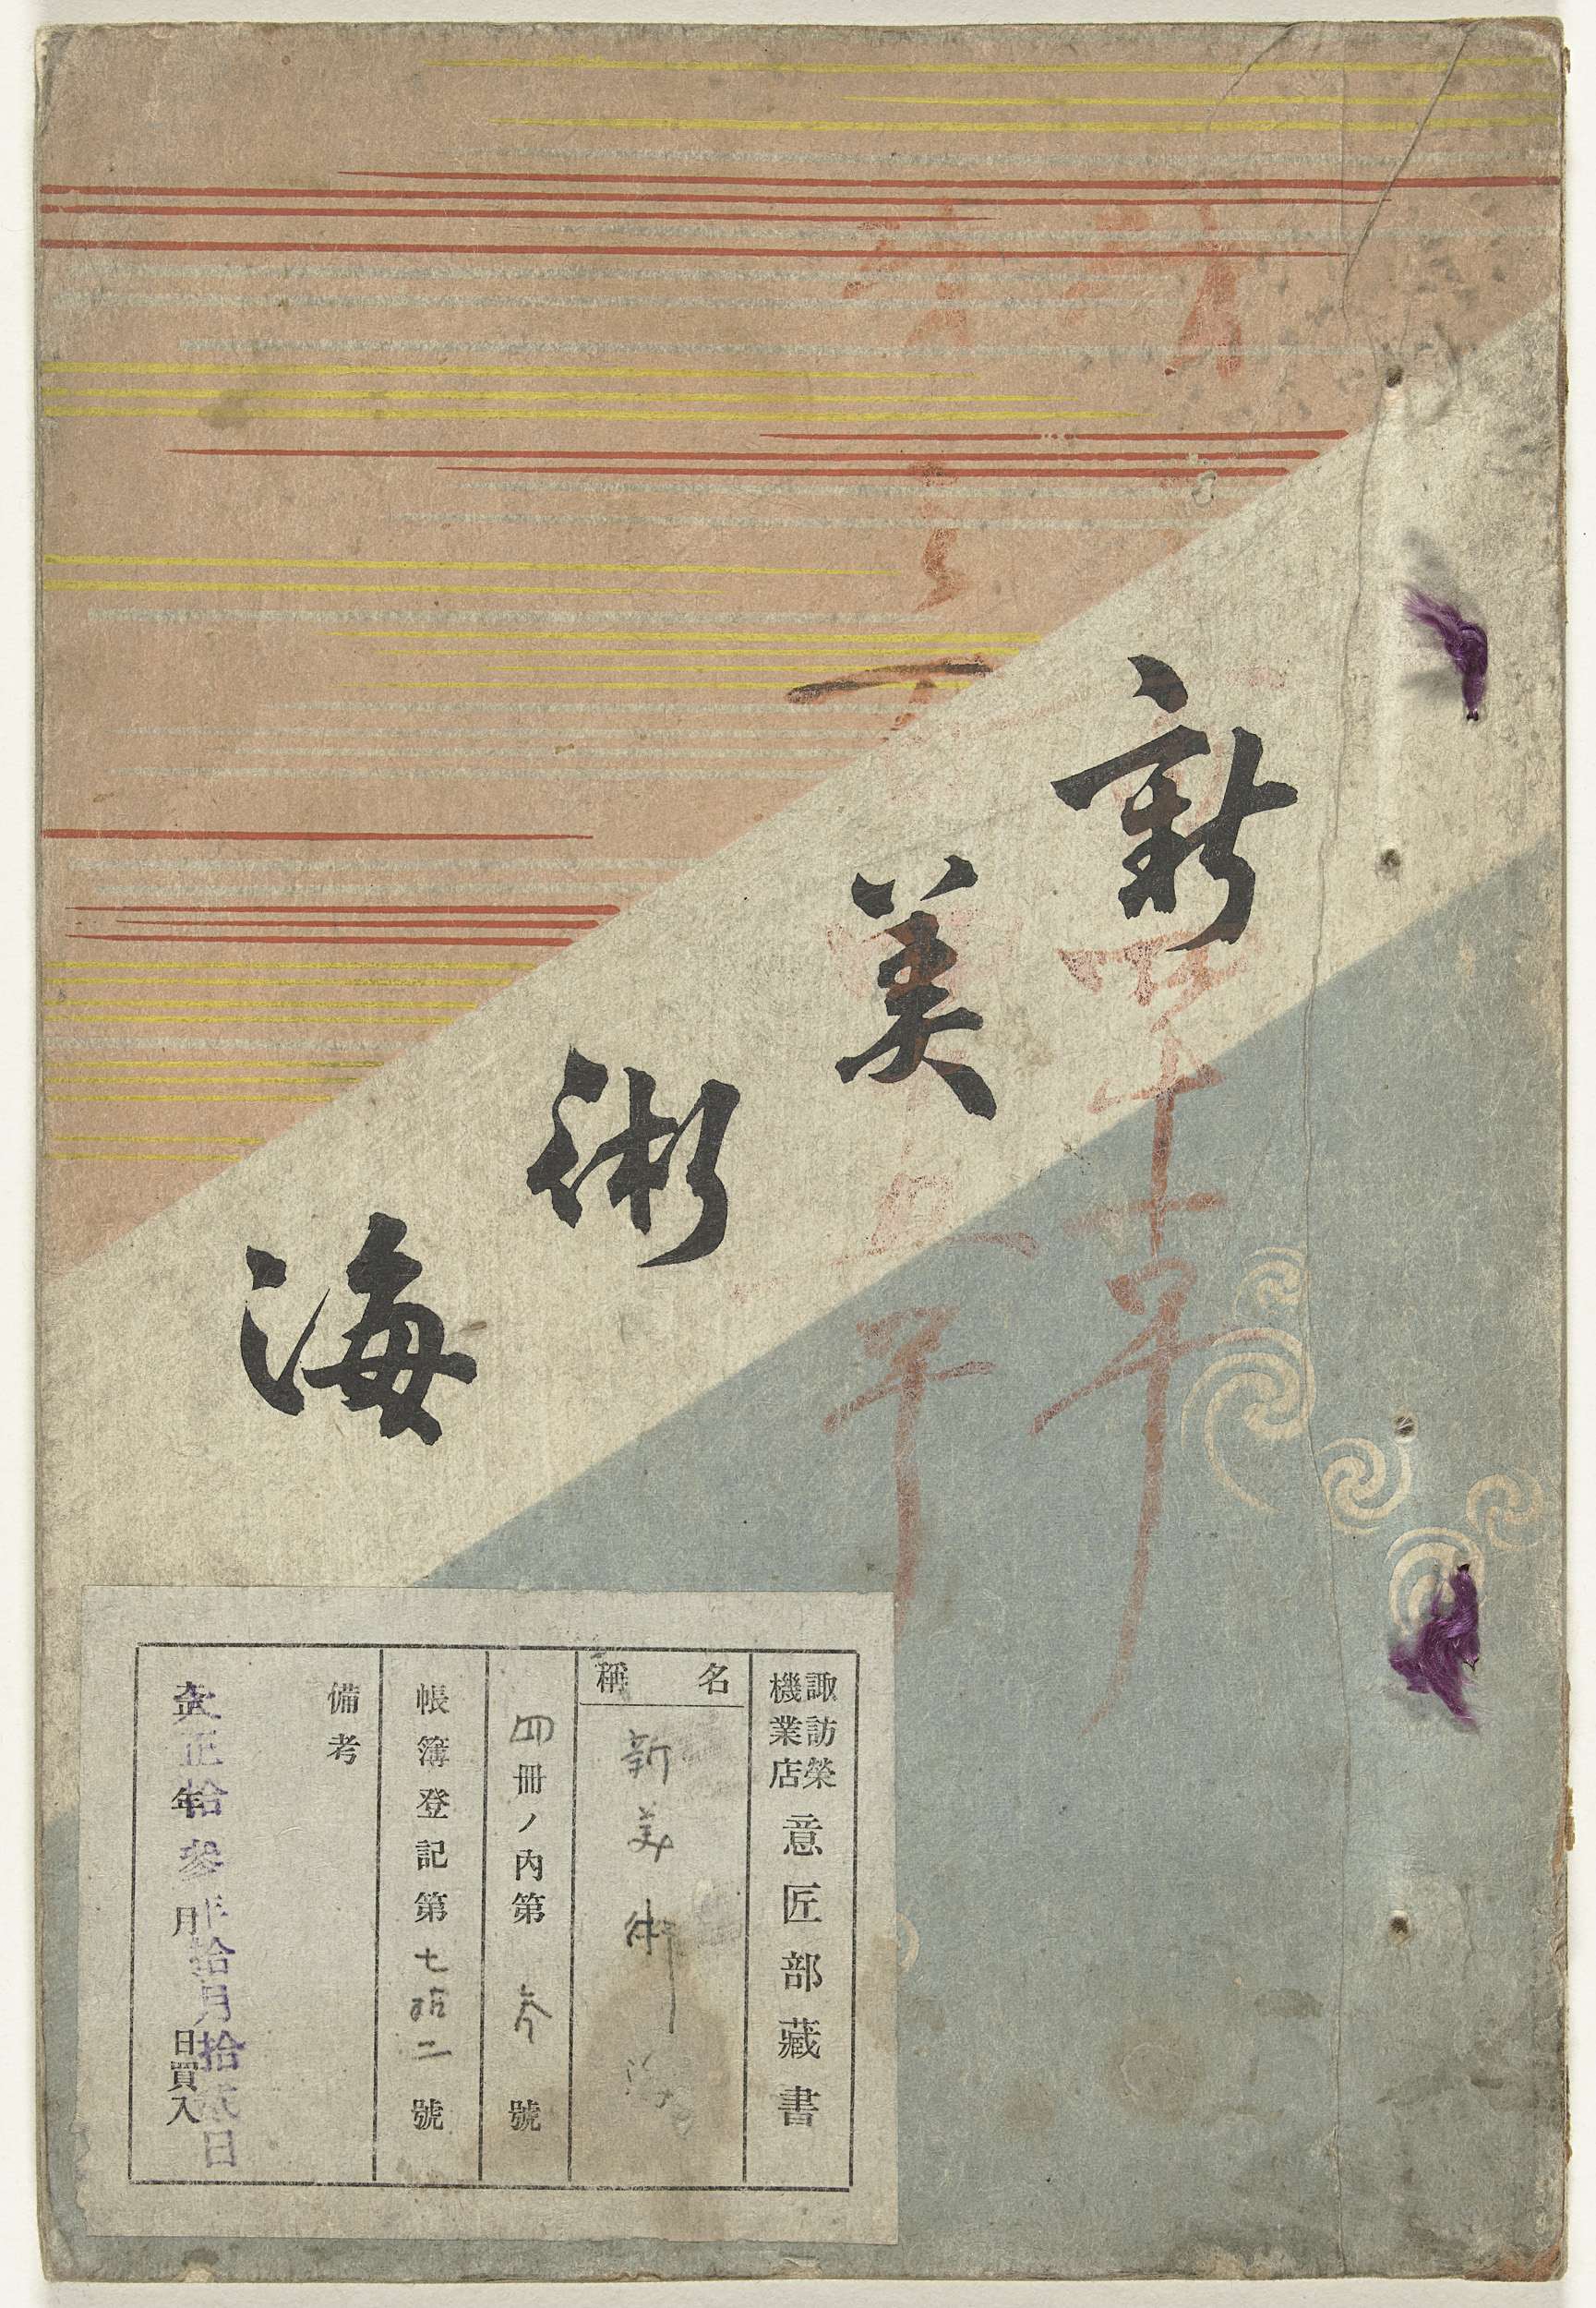 新美術海
諏訪榮
機業店
意匠部藏書
名稱
新美術海
四冊ノ内第參號
帳簿登記第七拾二號
備考
年月日買入
大正拾參年拾月拾貳日